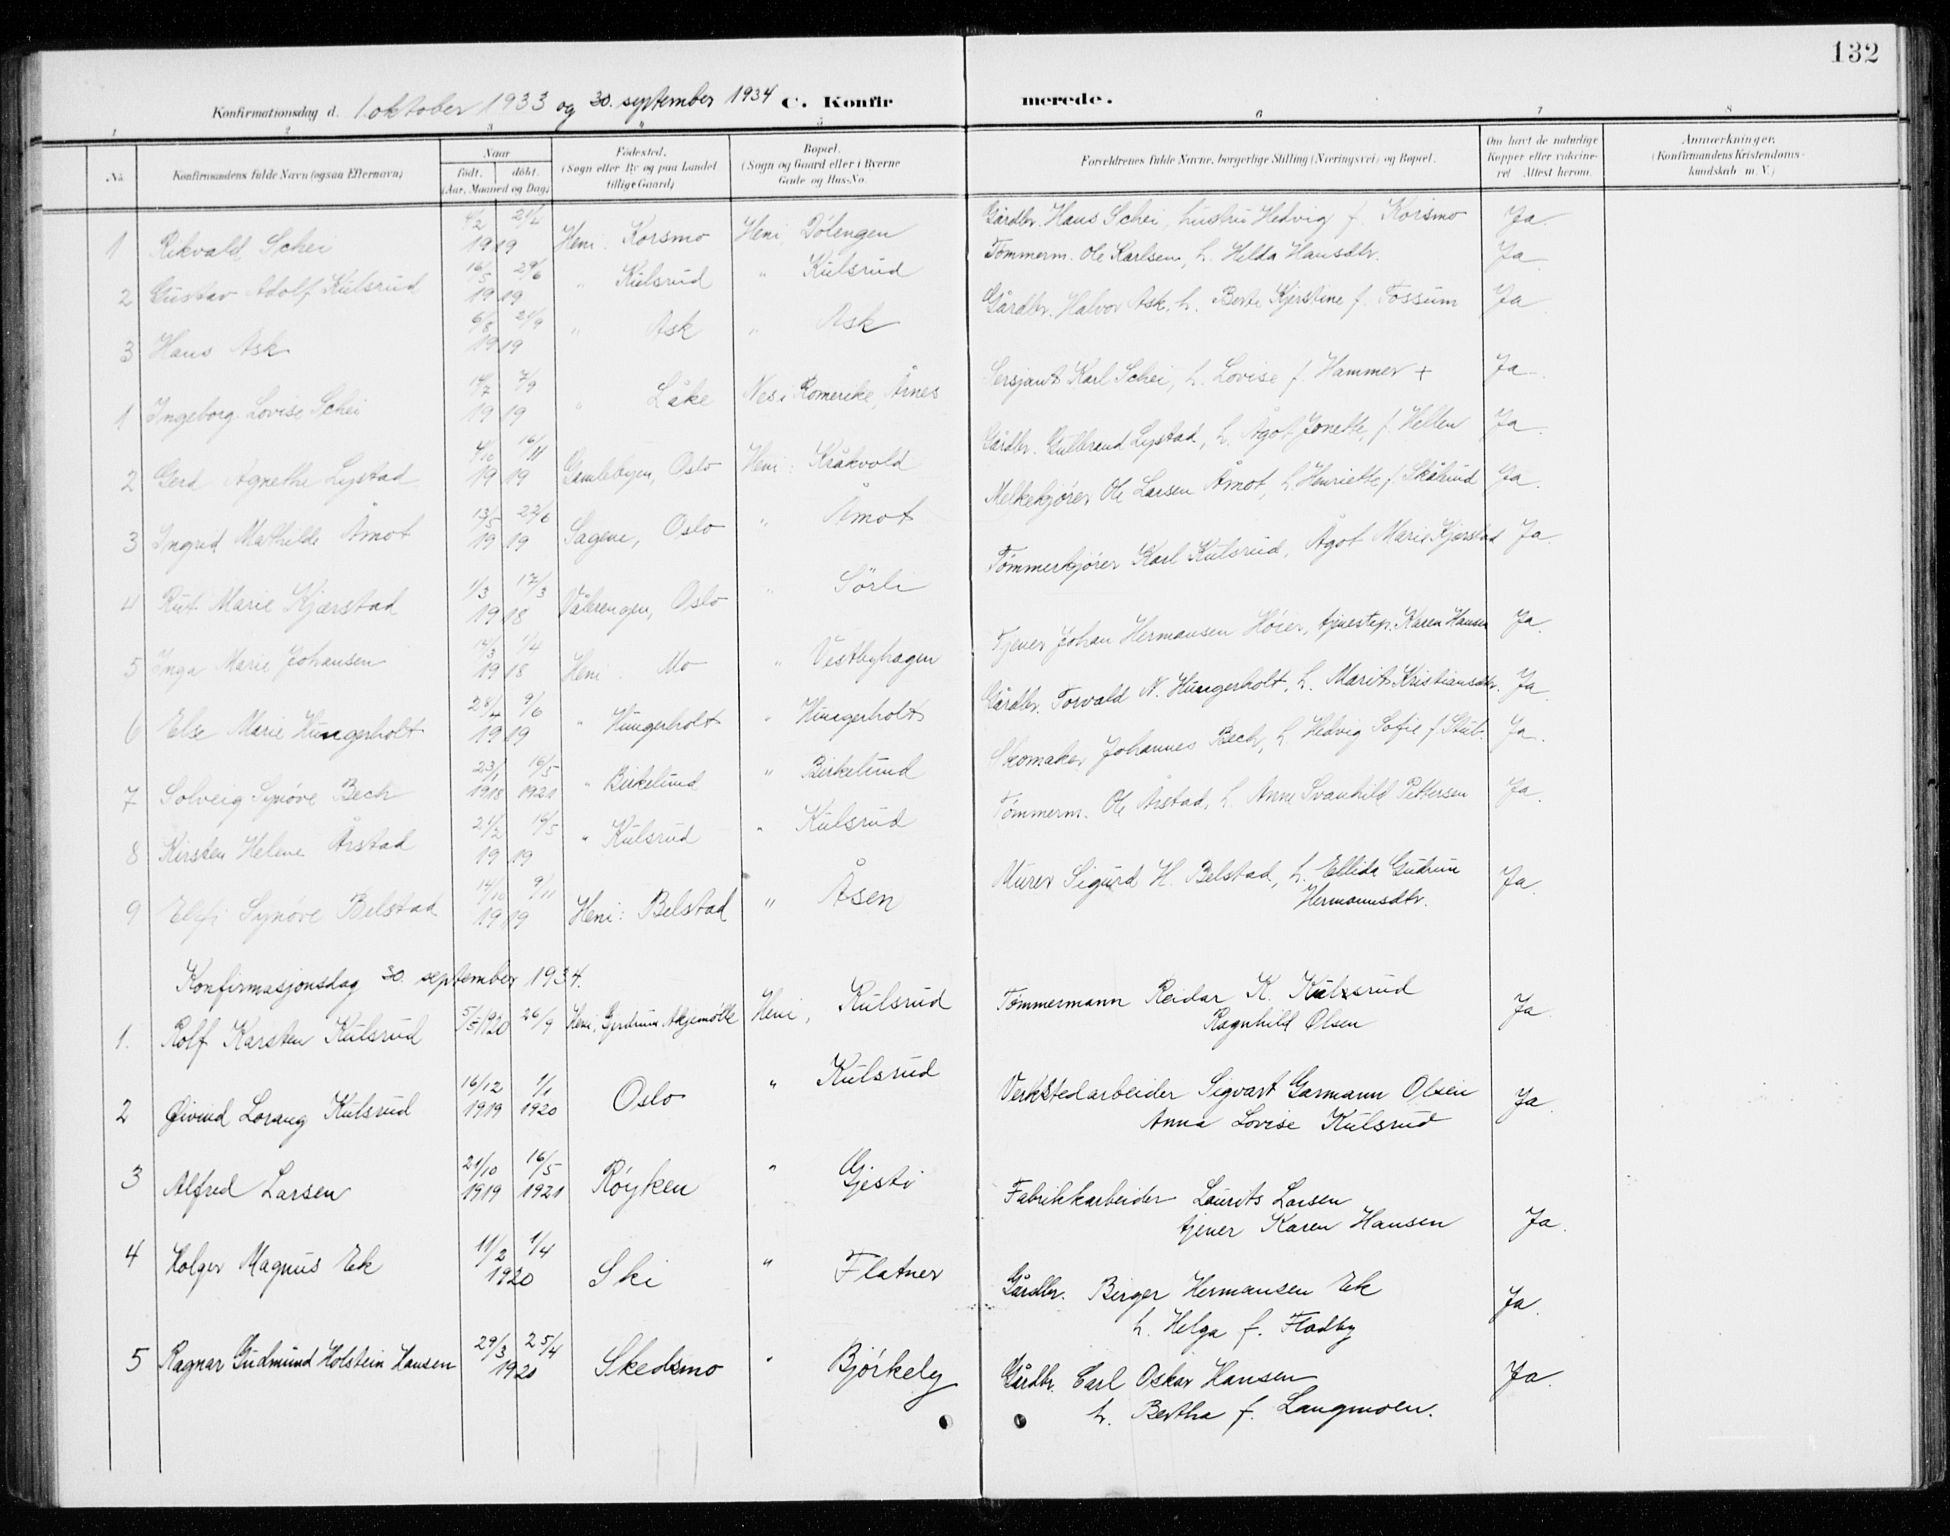 132
Konfirmationsdag d. 1 oktober 1933 og 30. september 1934 C. Konfirmerede.
1 2 3 4 5 6 7 8
No. Konfirmandens fulde Navn (ogsaa Efternavn) Naar født. døbt. (Aar, Maaned og Dag) Fødested. (Sogn eller By og paa Landet tillige Gaard) Bopæl. (Sogn og Gaard eller i Byerne Gade og Hus-No. Forældrenes fulde Navne, borgerlige Stilling (Næringsvei) og Bopæl. Om havt de naturlige Kopper eller vakcineret. Attest herom. Anmærkninger. (Konfirmandens Kristendomskundskab m. V.)
1 Rikvald Schei 4/2 21/6 1919 Heni: Korsmo Heni, Dölengen Gårdbr. Hans Schei, hustru Hedvig f. Korsmo Ja.
2 Gustav Adolf Kulsrud 16/5 29/6 1919 " Kulsrud " Kulsrud Tømmerm. Ole Karlsen, h. Hilda Hansdtr. Ja
3 Hans Ask 6/8 21/9 1919 " Ask " Ask Gårdbr. Halvor Ask, h. Berte Kjerstine f. Fossum Ja
1 Ingeborg Lovise Schei 14/7 7/9 1919 " Låke Nes i Romerike, Årnes Sersjant Karl Schei, h. Lovise f. Hammer + Ja
2 Gerd Agnethe Lystad 4/10 16/11 1919 Gamlebyen, Oslo Heni: Kråkvold Gårdbr. Gulbrand Lystad, h. Ågot Jonette, f. Hellen Ja
3 Ingrid Mathilde Åmot 13/5 22/6 1919 Sagene, Oslo " Åmot Melkekjører Ole Larsen Åmot, h. Henriette f. Skålrud Ja.
4 Rut Marie Kjærstad 1/3 17/3 1918 Vålerengen, Oslo " Sörli Tømmerkjører Karl Kulsrud, Ågot Marie Kjærstad Ja.
5 Inga Marie Johansen 14/3 1/4 1918 Heni. Mo " Vestbyhagen Tjener Johan Hermansen Höier, tjenestep. Karen Hansen Ja
6 Else Marie Hungerholt 28/4 9/6 1919 " Hungerholt " Hungerholt Gårdbr. Torvald N. Hungerholt, h. Marit Kristiansdtr. Ja
7 Solveig Synöve Bech 23/1 1918 16/5 1921 " Birkelund " Birkelund Skomaker Johannes Bech, h. Hedvig Sofie f. Stub. Ja.
8 Kirsten Helene Årstad 21/2 18/5 1919 " Kulsrud " Kulsrud Tømmerm. Ole Årstad, h. Anne Svanhild Pettersen Ja.
9 Elefi Synöve Belstad 14/10 9/11 1919 Heni: Belstad " Åsen Murer Sigurd H. Belstad, h. Ellida Gudrun Ja.
Hermannsdtr.
Konfirmasjonsdag 30. september 1934.
1. Rolf Karsten Kulsrud 5/5 1920 26/9 Heni, Gjerdrum, Askjemölle Heni, Kulsrud Tømmermann Reidar K. Kulsrud Ja
Ragnhild Olsen
2 Øivind Lorang Kulsrud 16/12 1919 1/1 1920 Oslo " Kulsrud Verkstedarbeider Sigvart Garmann Olsen Ja.
Anna Lovise Kulsrud
3 Alfred Larsen 21/10 1919 16/5 1921 Röyken " Gjesti Fabrikkarbeider Laurits Larsen
tjener Karen Hansen Ja.
4 Holger Magnus Ek 11/2 1/4 1920 Ski " Flatner Gårdbr. Birger Hermansen Ek Ja.
h. Helga f. Fladby
5 Ragnar Gudmund Holstein Hansen 29/3 25/4 1920 Skedsmo " Björkely Gårdbr. Carl Oskar Hansen Ja.
h. Bertha f. Langmoen.